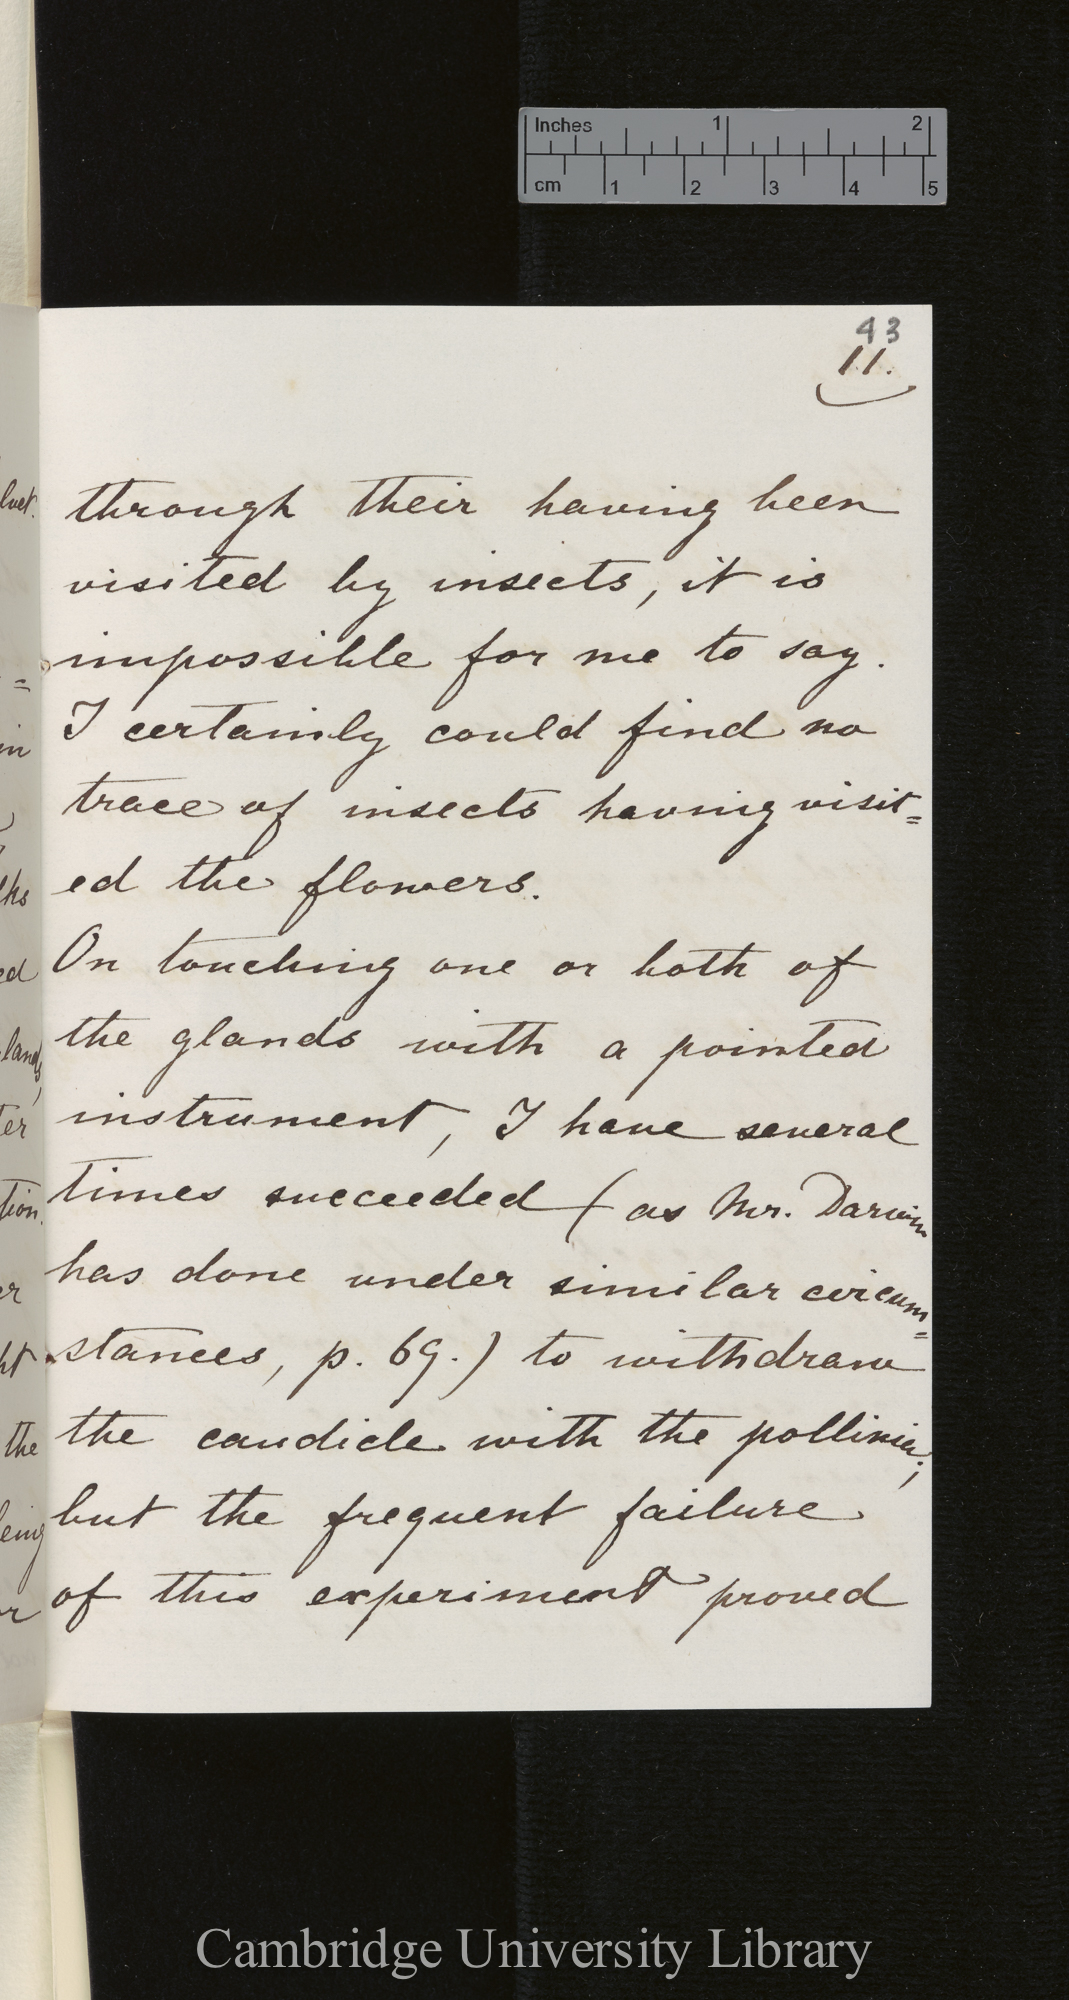 Inches 1 2
cm 1 2 3 4 5
43
11.
through their having been
visited by insects, it is
impossible for me to say.
I certainly could find no
trace of insects having visit=
ed the flowers.
On touching one or both of
the glands with a pointed
instrument, I have several
times succeeded (as Mr. Darwin
has done under similar circum=
stances, p. 69.) to withdraw
the caudicle with the pollinia;
but the frequent failure
of this experiment proved
Cambridge University Library